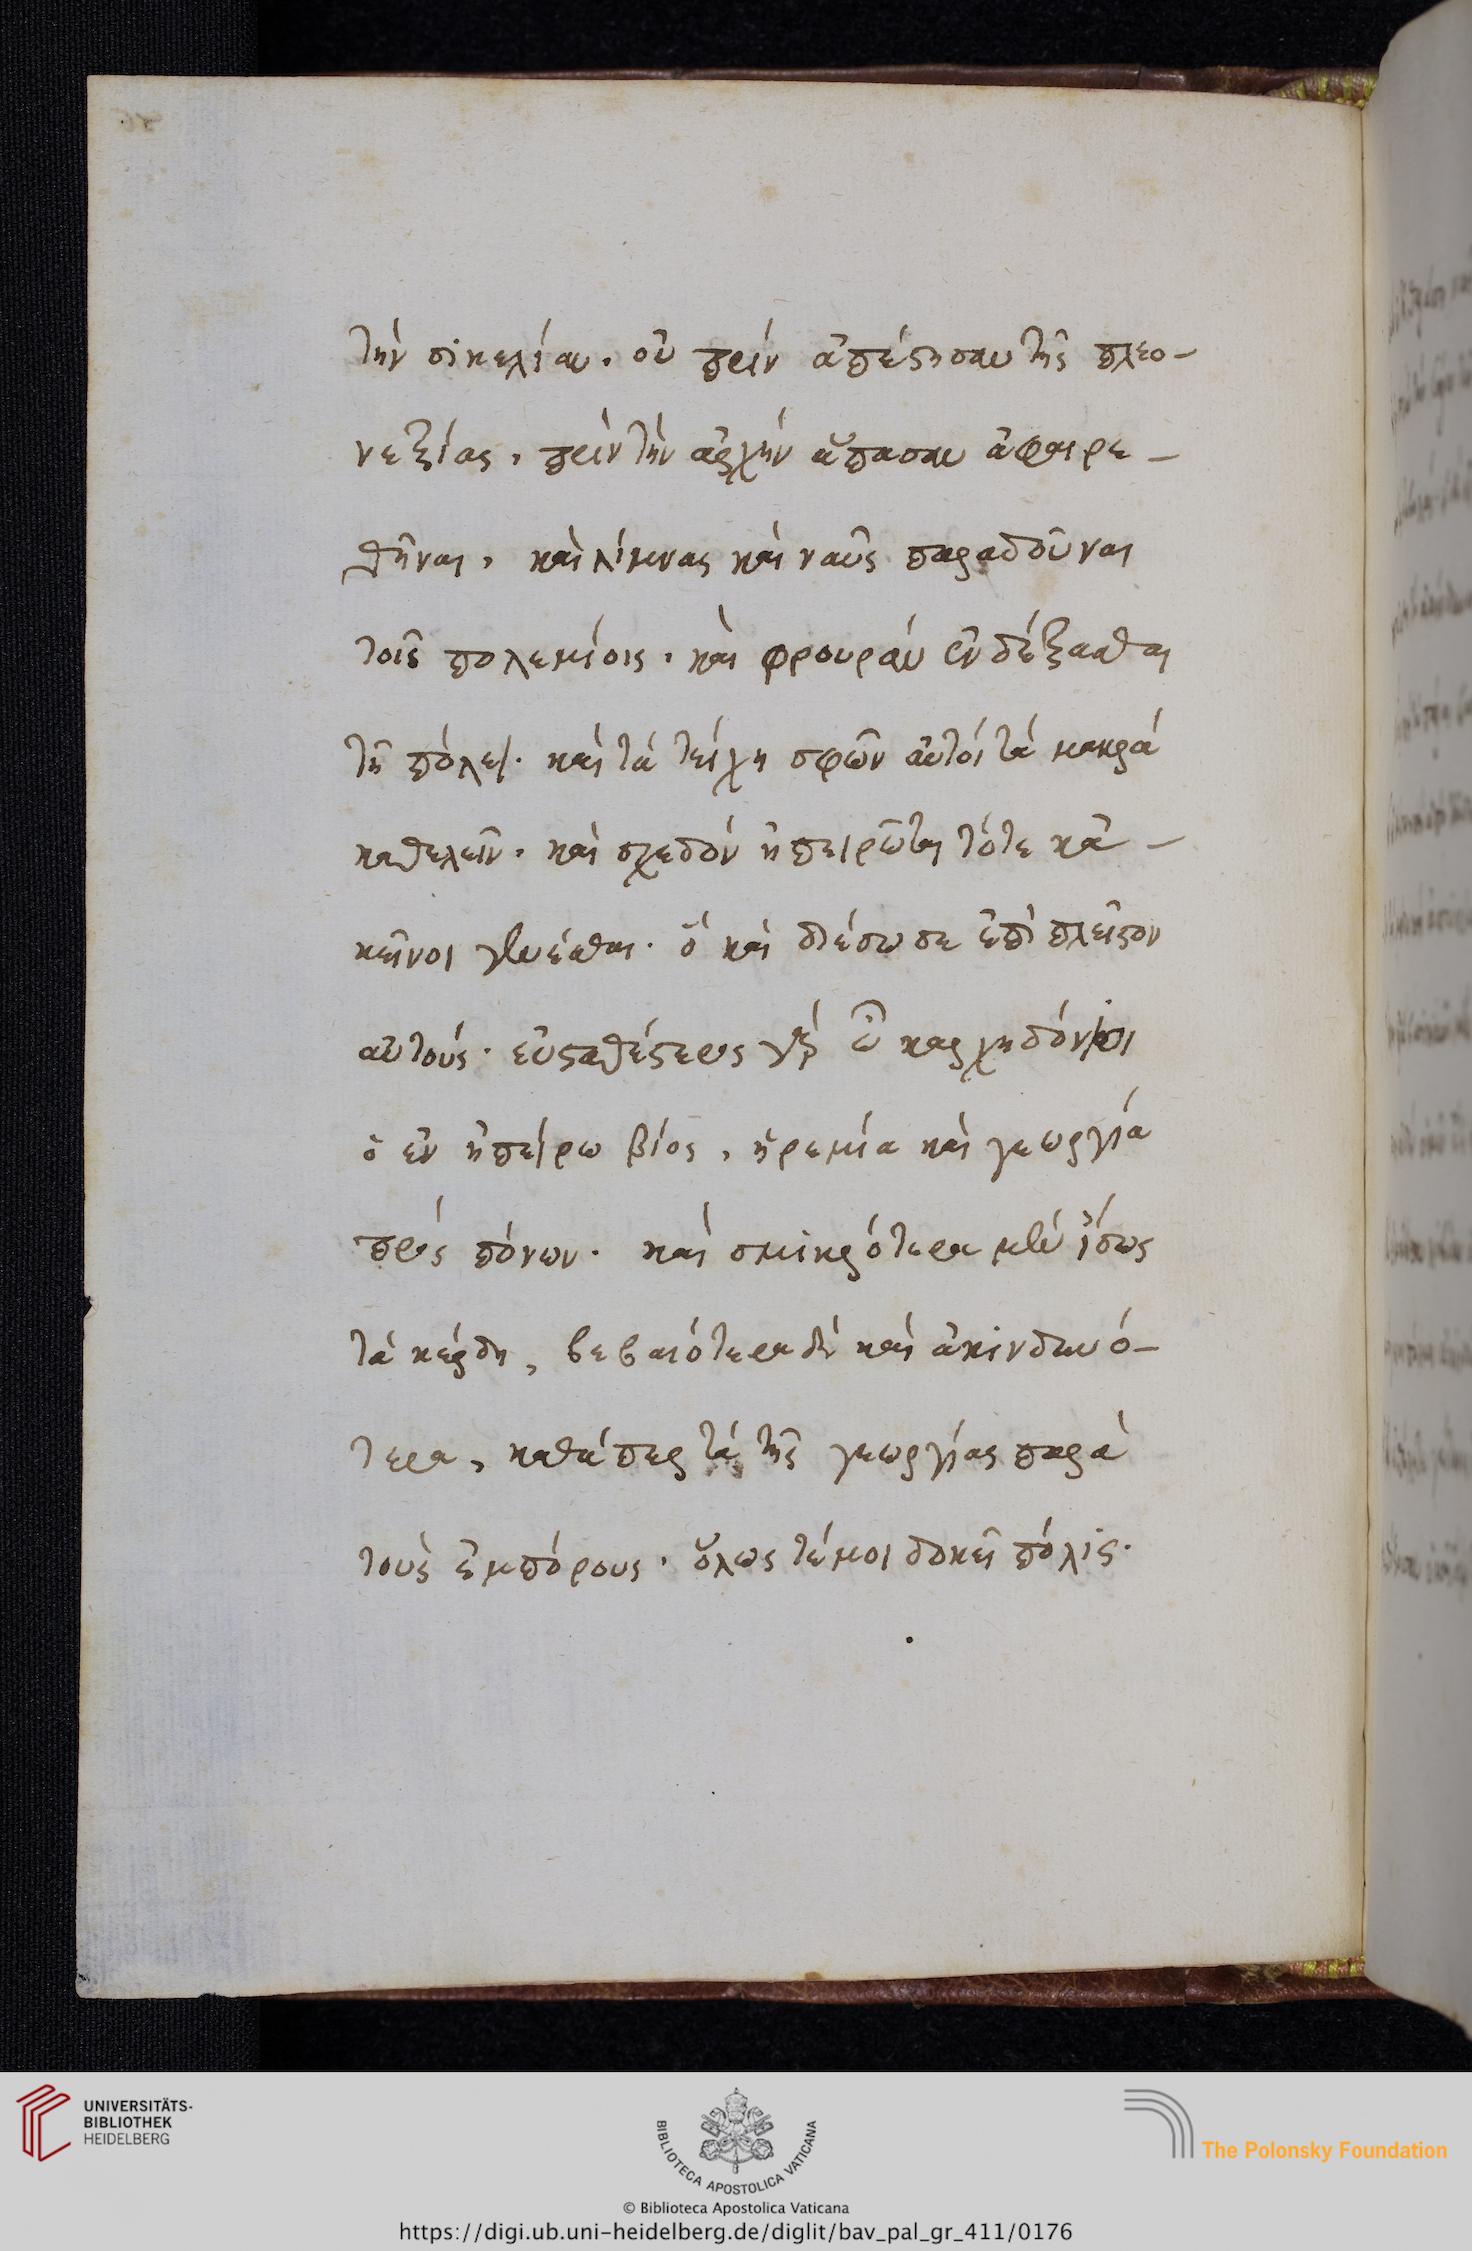 τὴν σικελίαν. οὐ πρὶν ἀπέστησαν τῆς πλεο-
νεξίας, πρὶν τὴν ἀρχὴν ἅπασαν ἀφαιρε-
θῆναι, καὶ λίμνας καὶ ναῦς παραδοῦναι
τοῖς πολεμίοις. καὶ φρουρὰν ἐνδέξασθαι
τῇ πόλει. καὶ τὰ τείχη σφῶν αὐτοὶ τὰ μακρὰ
καθελεῖν. καὶ σχεδὸν ἠπειρῶται τότε κἀ-
κεῖνοι γενέσθαι. ὃ καὶ διέσωσε ἐπὶ πλεῖστον
αὐτούς. εὐσταθέστερος γὰρ ὦ καρχηδόνιοι
ὁ ἐν ἠπείρω βίος, ἠρεμία καὶ γεωργία
πρὸς πόνων. καὶ σμικρότερα μὲν ἴσως
τὰ κέρδη, βεβαιότερα δὲ καὶ ἀκινδυνό-
τερα, καθάπερ τὰ τῆς γεωργίας παρὰ
τοὺς ἐμπόρους. ὅλως τέ μοι δοκεῖ πόλις.
UNIVERSITÄTS-
BIBLIOTHEK
HEIDELBERG
BIBLIOTECA APOSTOLICA VATICANA
The Polonsky Foundation
© Biblioteca Apostolica Vaticana
https://digi.ub.uni-heidelberg.de/diglit/bav_pal_gr_411/0176